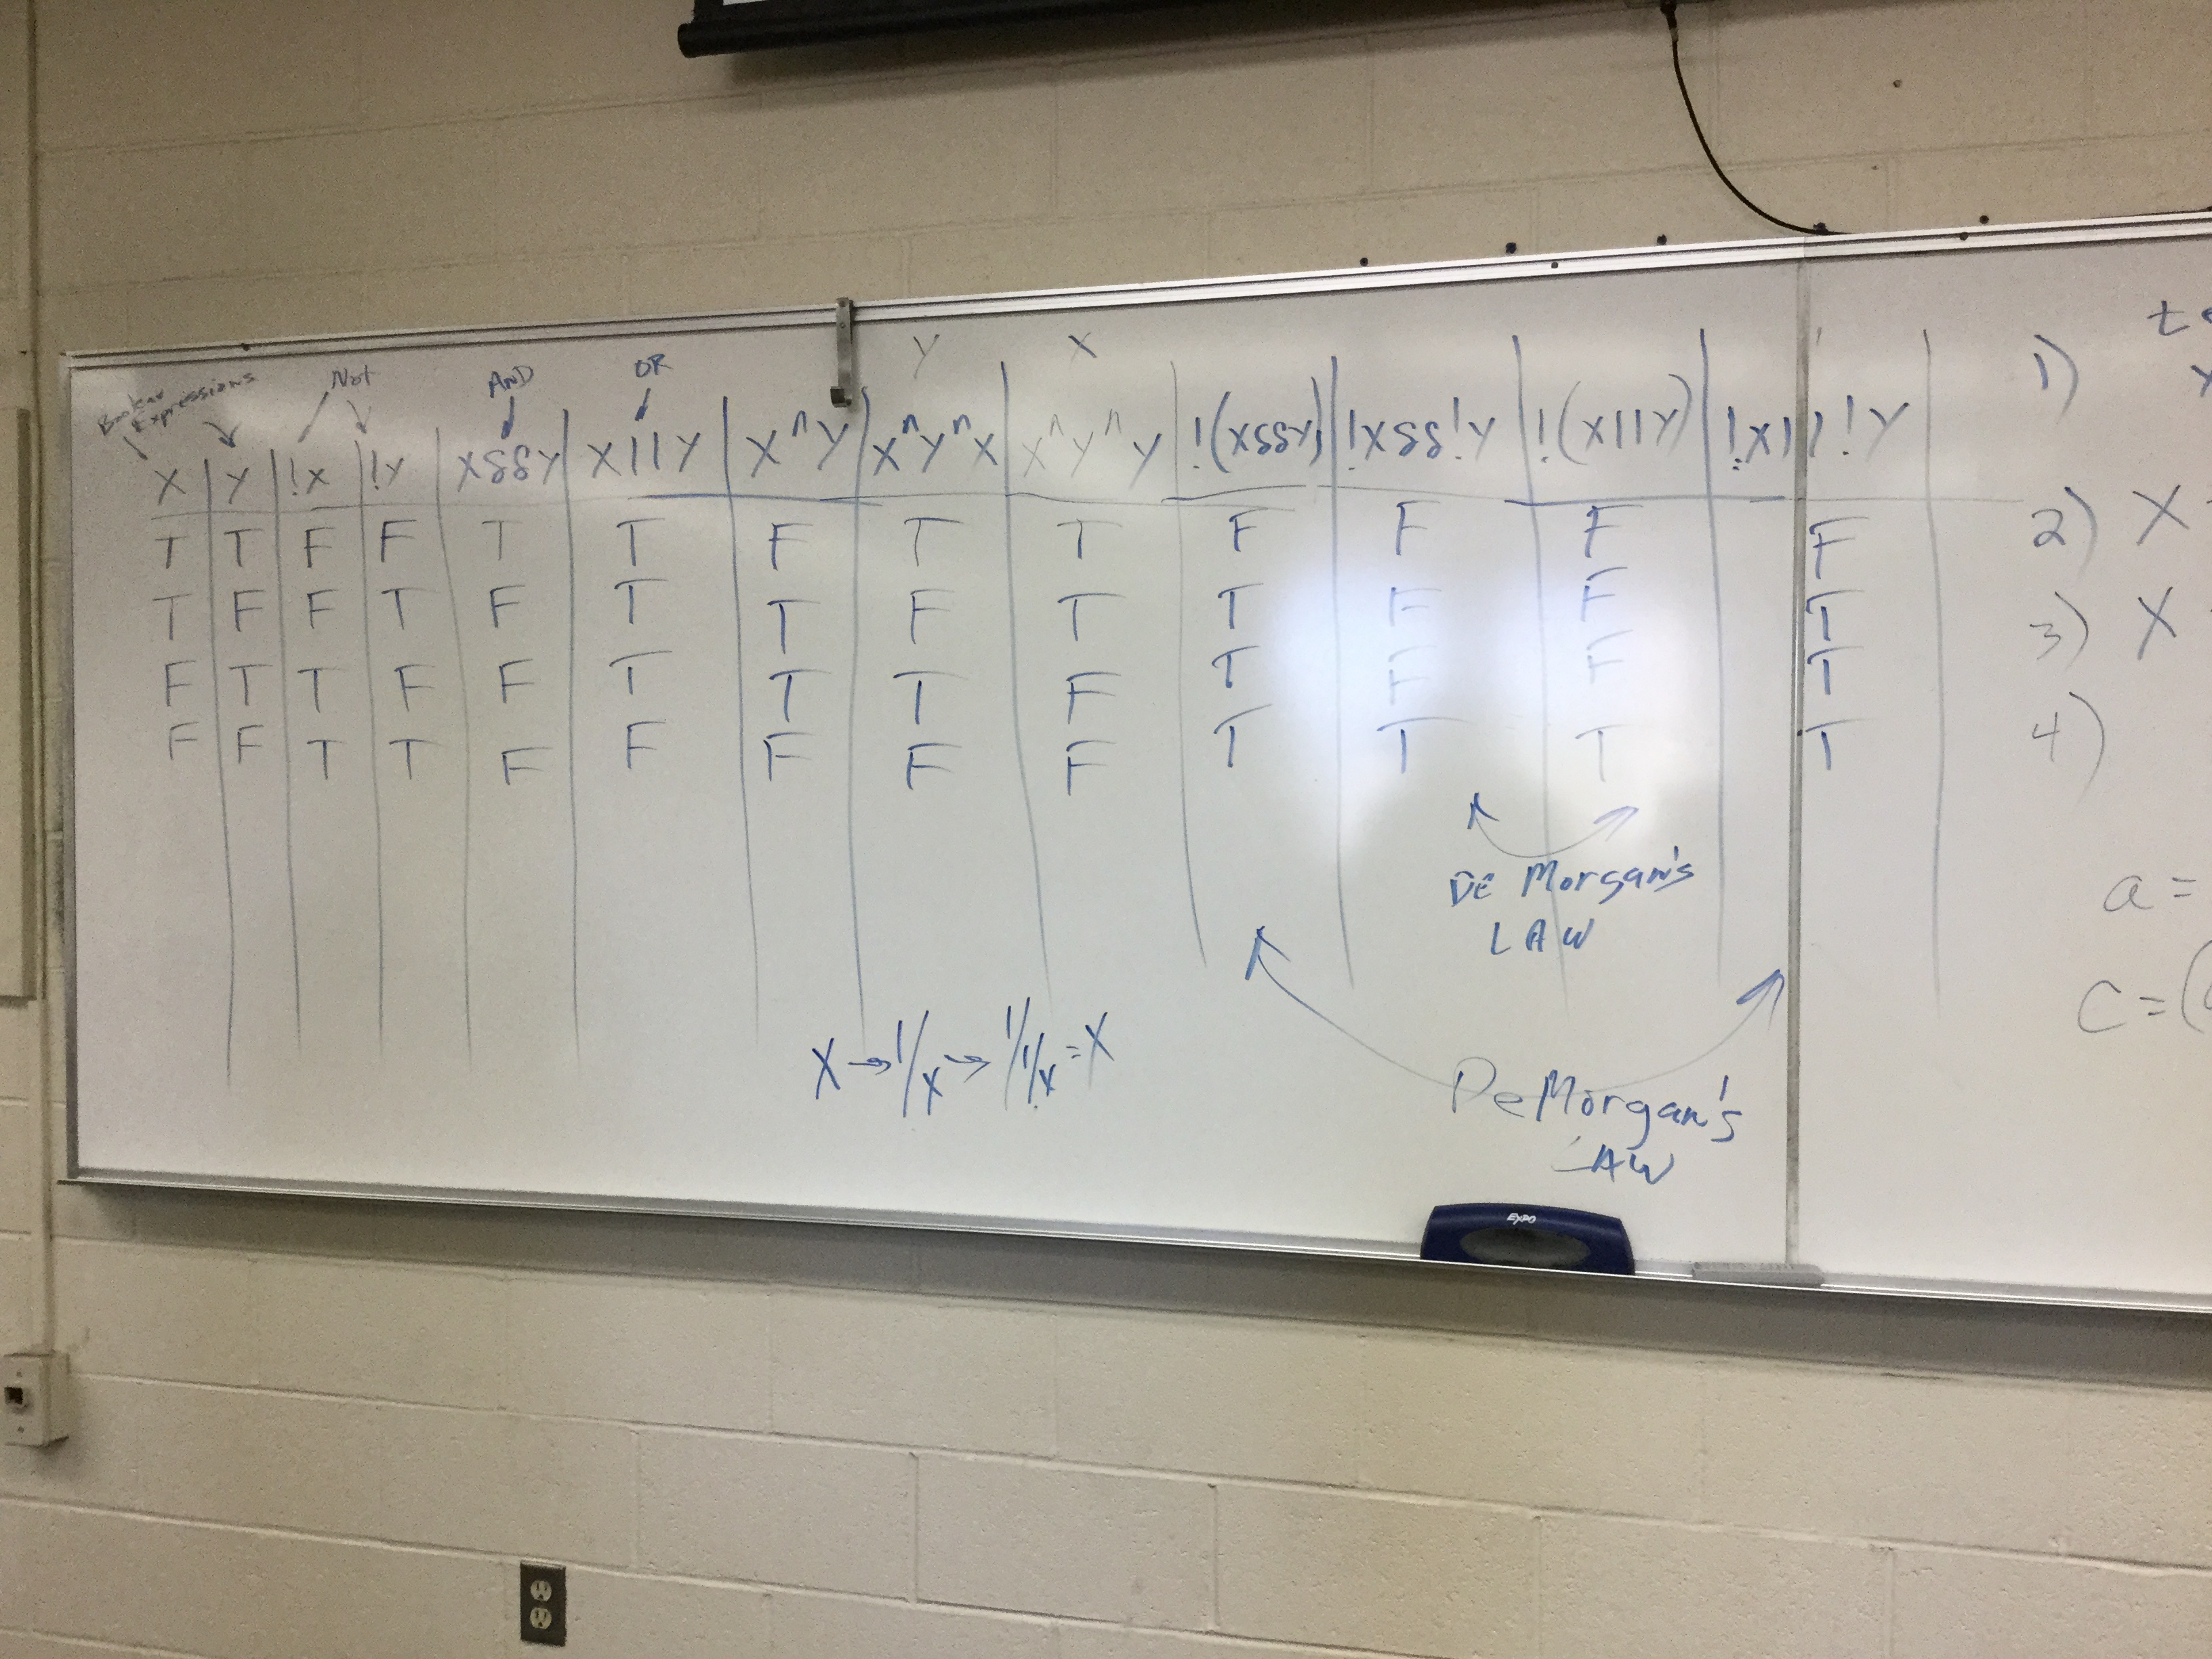 Boolean Expressions Not AND OR Y X
X Y !X !Y X&&Y X||Y X^Y X^Y^X X^Y^Y !(X&&Y) !X&&!Y !(X||Y) !X||!Y
T T F F T T F T T F F F F
T F F T F T T F T T F F T
F T T F F T T T F T F F T
F F T T F F F F F T T T T
DE Morgan's
LAW
X → 1/X → 1/1/X = X
DeMorgan's
LAW
1)
2) X
3) X
4)
a =
C = (
EXPO